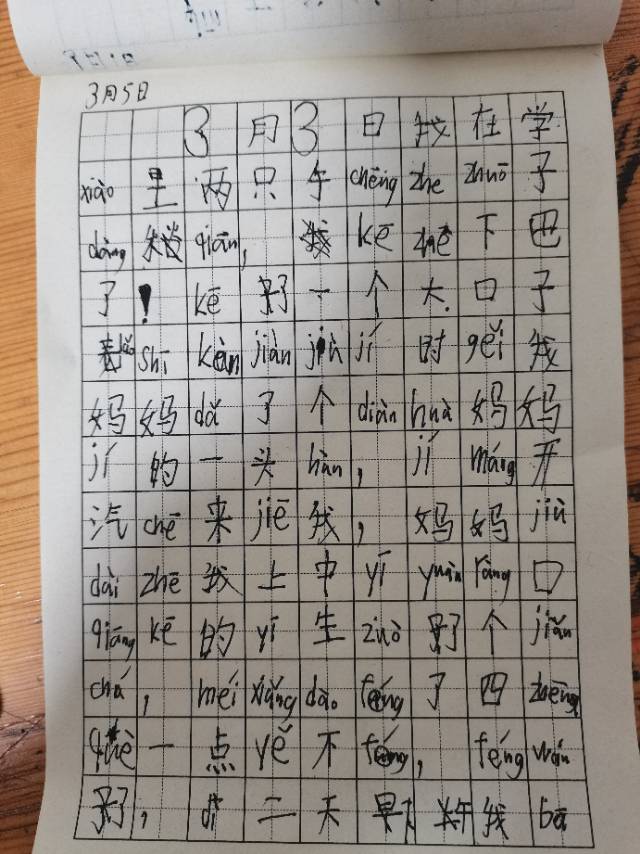 3月5日
3月3日我在学
xiào里两只午chēng zhe zhuō子
dàng qiān,我kē zhē下巴
了!kē了一个大口子
lǎo shī kàn jiàn jí时gěi我
妈妈dǎ了个diàn huà妈妈
jí的一头hàn,jí máng开
汽chē来jiē我,妈妈jiù
dài zhē我上中yī yuàn ràng口
qiāng kē的yī生zuò了个jiǎn
chá,méi xiǎng dào féng了四zhēng
què一点yě不téng,féng wán
,dì二天早上我bā